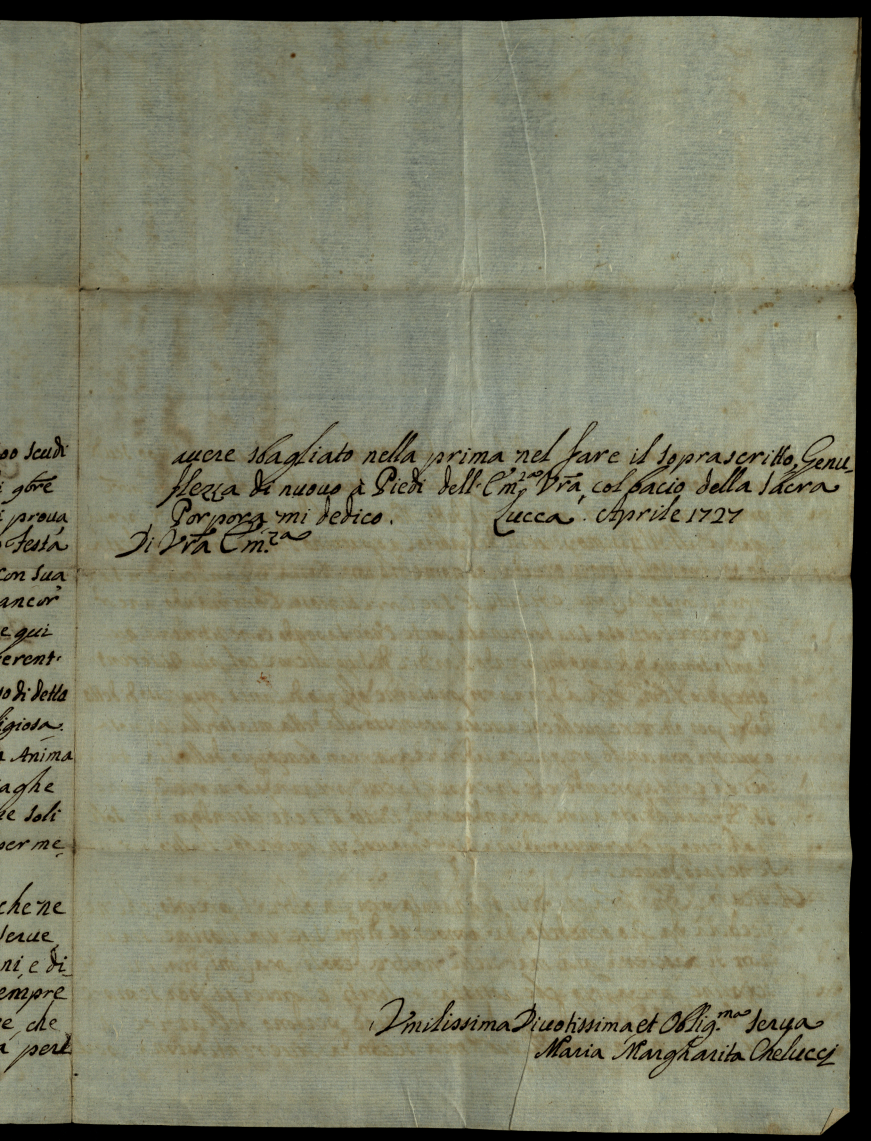 00 scudi
i gbre
i proua
Testa
con sua
ancor
e qui
erent
so di detta
ligiosa.
a Anima
iaghe
ne soli
per me,
che ne
serue
ni, e di-
empre
e, che
a per
auere sbagliato nella prima nel fare il soprascritto, Genu-
flessa di nuouo à Piedi dell'Em.za Vra, col bacio della Sacra
Porpora mi dedico. Lucca. Aprile 1727
Di Vra Em.za
Vmilissima Diuotissima et Oblig.ma Serua
Maria Margharita Chelucci